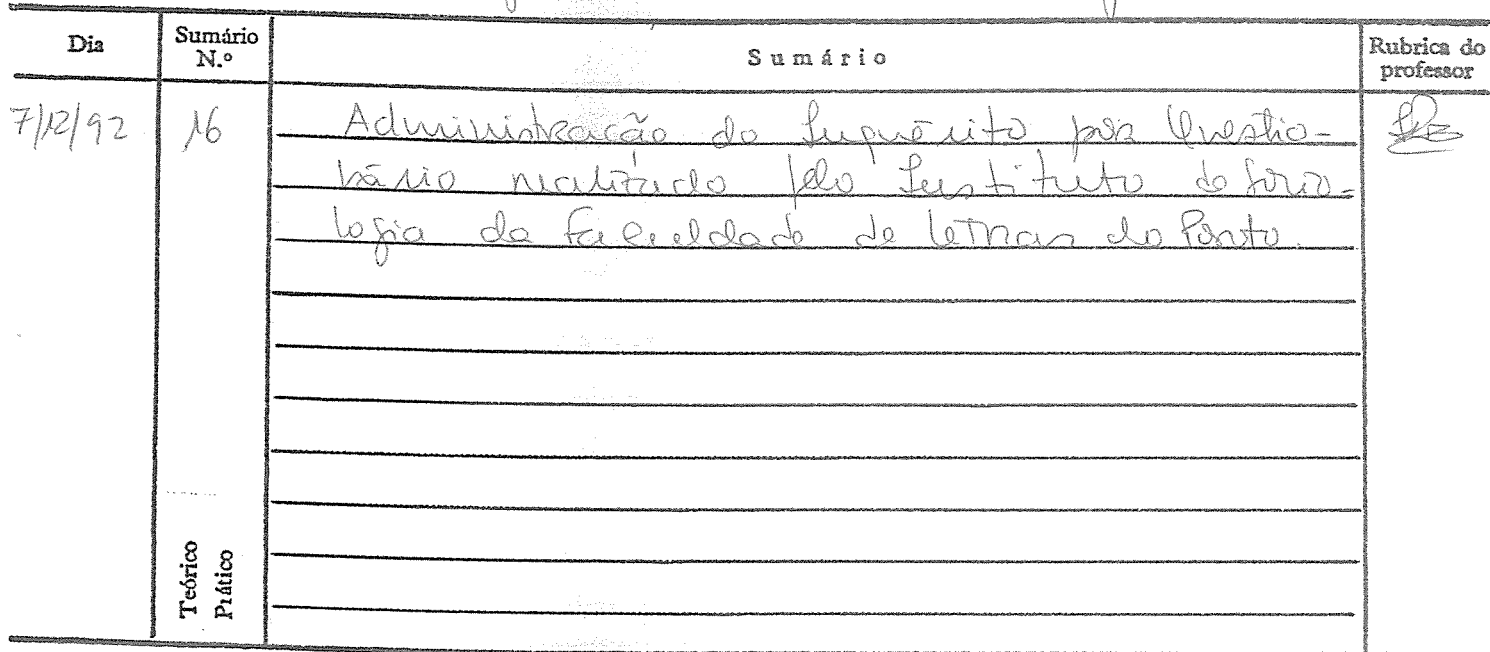 Dia Sumário N.º Sumário Rubrica do professor
7/12/92 16 Administração do Inquérito por Questio-
nário realizado pelo Instituto de Socio-
logia da Faculdade de Letras do Porto.
Teórico
Prático